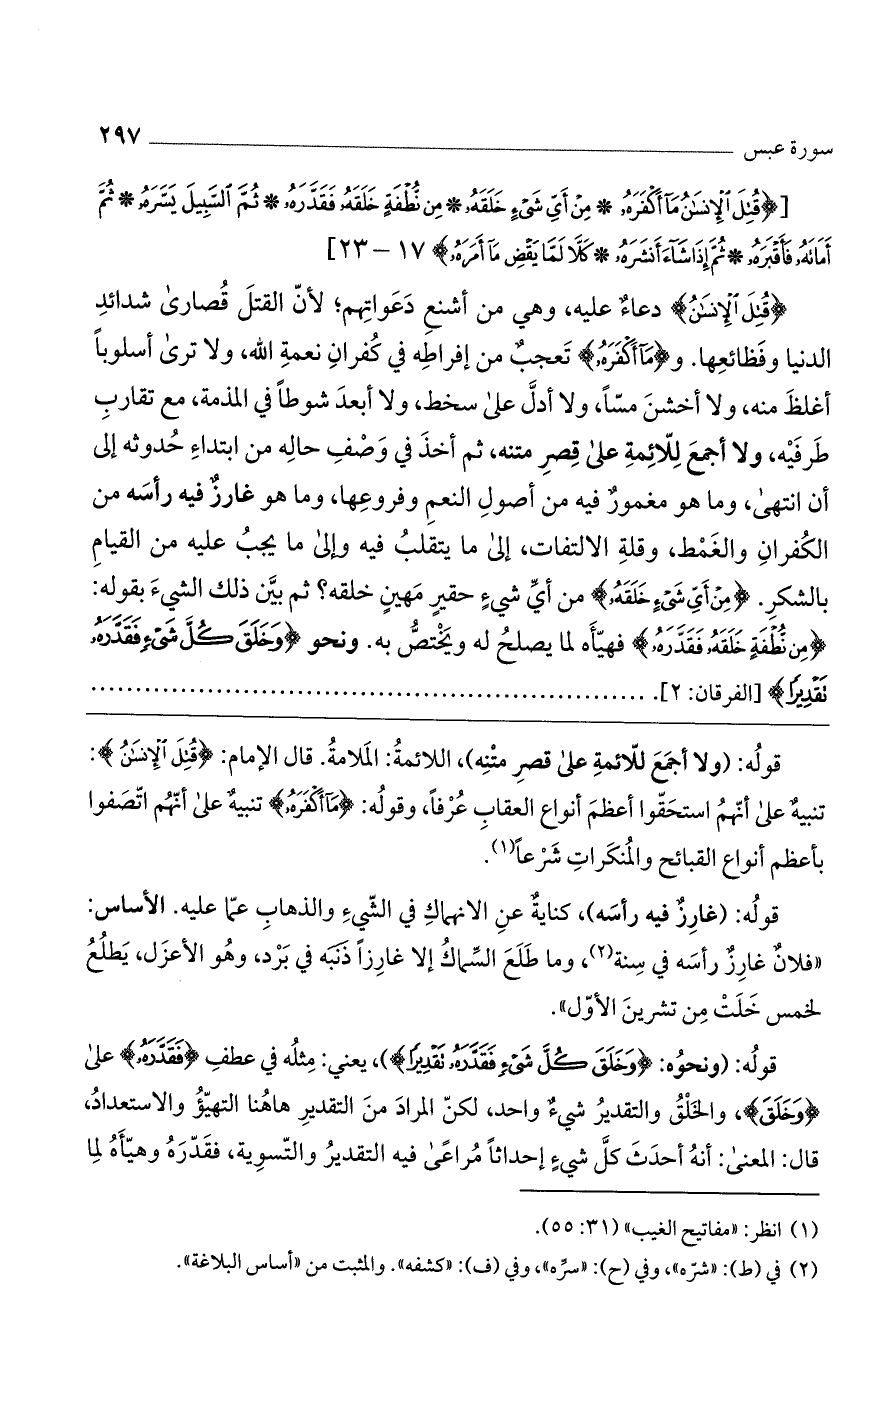 سورة عبس ٢٩٧
[﴿قُتِلَ ٱلْإِنسَٰنُ مَآ أَكْفَرَهُۥ * مِنْ أَىِّ شَىْءٍ خَلَقَهُۥ * مِن نُّطْفَةٍ خَلَقَهُۥ فَقَدَّرَهُۥ * ثُمَّ ٱلسَّبِيلَ يَسَّرَهُۥ * ثُمَّ
أَمَاتَهُۥ فَأَقْبَرَهُۥ * ثُمَّ إِذَا شَآءَ أَنشَرَهُۥ * كَلَّا لَمَّا يَقْضِ مَآ أَمَرَهُۥ﴾ ١٧ – ٢٣]
﴿قُتِلَ ٱلْإِنسَٰنُ﴾ دعاءٌ عليه، وهي من أشنعِ دَعَواتِهم؛ لأنّ القتلَ قُصارىٰ شدائدِ
الدنيا وفَظائعِها. و﴿مَآ أَكْفَرَهُۥ﴾ تَعجبٌ من إفراطِه في كُفرانِ نعمةِ الله، ولا ترىٰ أسلوباً
أغلظَ منه، ولا أخشنَ مسّاً، ولا أدلَّ علىٰ سخط، ولا أبعدَ شوطاً في المذمة، مع تقاربِ
طَرفَيْه، ولا أجمعَ لِلّائِمةِ علىٰ قِصرِ متنه، ثم أخذَ في وَصْفِ حالِه من ابتداءِ حُدوثه إلى
أن انتهىٰ، وما هو مغمورٌ فيه من أصولِ النعمِ وفروعِها، وما هو غارزٌ فيه رأسَه من
الكُفرانِ والغَمْط، وقلةِ الالتفات، إلىٰ ما يتقلبُ فيه وإلىٰ ما يجبُ عليه من القيامِ
بالشكرِ. ﴿مِنْ أَىِّ شَىْءٍ خَلَقَهُۥ﴾ من أيِّ شيءٍ حقيرٍ مَهينٍ خلقه؟ ثم بيَّن ذلك الشيءَ بقوله:
﴿مِن نُّطْفَةٍ خَلَقَهُۥ فَقَدَّرَهُۥ﴾ فهيّأه لما يصلحُ له ويَخْتصُّ به. ونحو ﴿وَخَلَقَ كُلَّ شَىْءٍ فَقَدَّرَهُۥ
نَقْدِيرًا﴾ [الفرقان: ٢]. ..............................................................
قولُه: (ولا أجمَعَ للّائمةِ علىٰ قصرِ متْنِه)، اللائمةُ: المَلامةُ. قال الإمام: ﴿قُتِلَ ٱلْإِنسَٰنُ﴾:
تنبيهٌ علىٰ أنّهمُ استحَقّوا أعظمَ أنواع العقابِ عُرْفاً، وقولُه: ﴿مَآ أَكْفَرَهُۥ﴾ تنبيهٌ علىٰ أنّهُم اتّصَفوا
بأعظم أنواع القبائح والمُنكَراتِ شَرْعاً(١).
قولُه: (غارِزٌ فيه رأسَه)، كنايةٌ عنِ الانهماكِ في الشّيءِ والذهابِ عمّا عليه. الأساس:
«فلانٌ غارِزٌ رأسَه في سِنة(٢)، وما طَلَعَ السِّماكُ إلا غارِزاً ذَنَبَه في بَرْد، وهُو الأعزَل، يَطلُعُ
لخمس خَلَتْ مِن تشرينَ الأوّل».
قولُه: (ونحوُه: ﴿وَخَلَقَ كُلَّ شَىْءٍ فَقَدَّرَهُۥ نَقْدِيرًا﴾)، يعني: مِثلُه في عطفِ ﴿فَقَدَّرَهُۥ﴾ علىٰ
﴿وَخَلَقَ﴾، والخَلْقُ والتقديرُ شيءٌ واحد، لكنّ المرادَ منَ التقديرِ هاهُنا التهيّؤُ والاستعدادُ،
قال: المعنىٰ: أنهُ أحدَثَ كلَّ شيءٍ إحداثاً مُراعًى فيه التقديرُ والتّسوِية، فقَدّرَهُ وهيّأهُ لِما
(١) انظر: «مفاتيح الغيب» (٣١: ٥٥).
(٢) في (ط): «شرّه»، وفي (ح): «سرِّه»، وفي (ف): «كشفه». والمثبت من «أساس البلاغة».